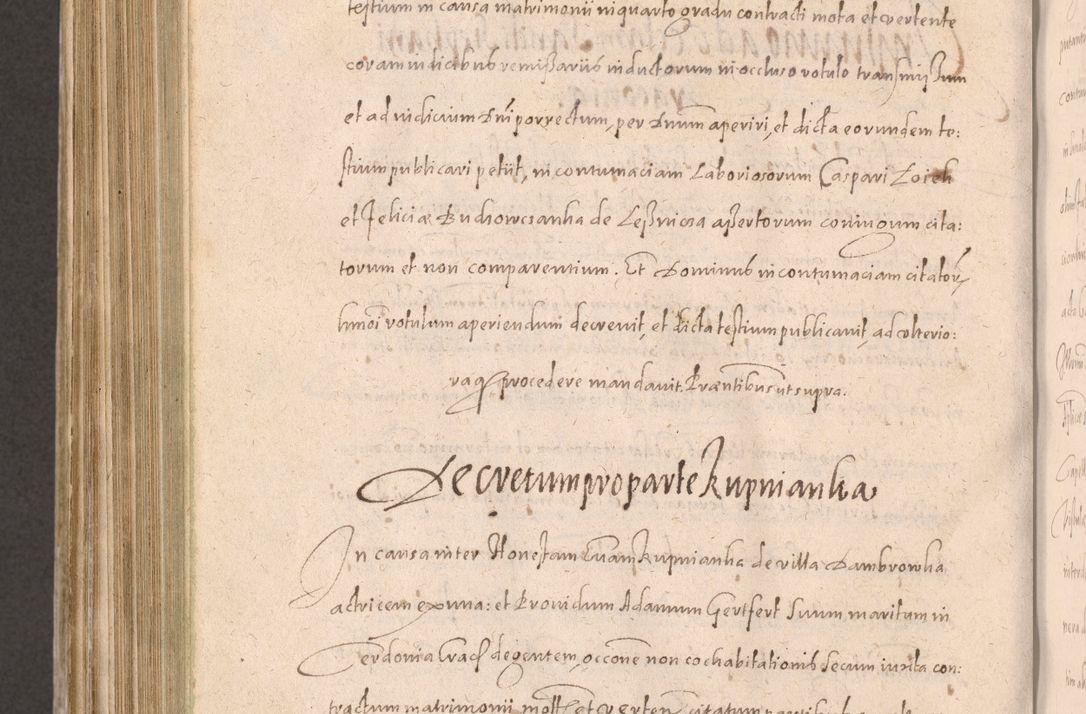 testium in causa matrimonii in quarto gradu contracti mota et vertente
coram iudicibus remissariis inductorum in occluso rotulo transmissum
et ad iudicium Dni porrectum, per Dnum aperiri, et dicta eorundem te:
stium publicari petiit, in contumaciam Laboriosorum Caspari
et Feliciæ Budhowcsanka de assertorum coniugum cita:
torum et non comparentium. Et Dominus in contumaciam citator,
hmoi rotulum aperiendum decrevit, et dicta testium publicavit, ad vlterio:
raq procedere mandavit. Præntibus ut supra.
Decretum pro parte Kupnianka
In causa inter Honestam Evam Kupnianka de villa Dambrowka
actricem ex una: et Providum Adamum Gertfert Suum maritum in
Cerdonia Crac degentem, occone non cochabitationis Secum iuxta con:
tractum matrimonii mott et verten citatum